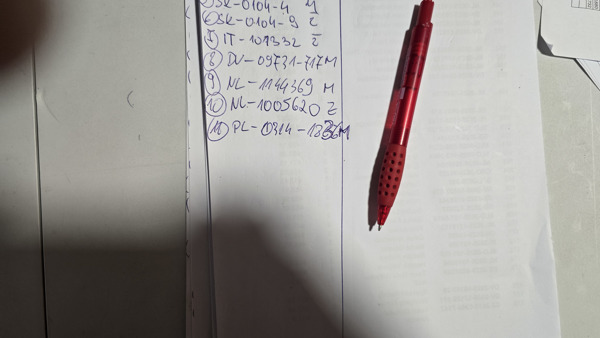 SK-0104-4 M
⑥ SK-0104-9 Ž
⑦ IT-107332 Ž
⑧ DV-09731-717 M
⑨ NL-1144369 M
⑩ NL-1005620 Ž
⑪ PL-0314-1836 M